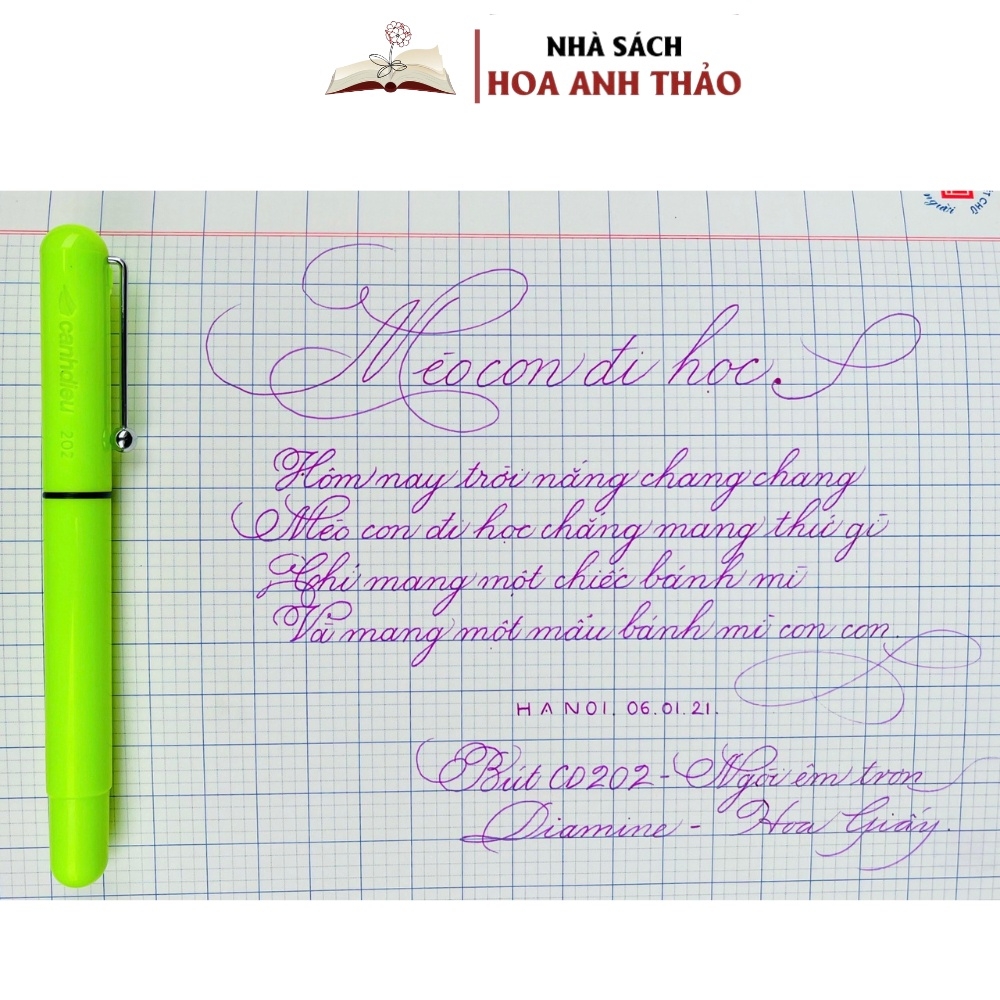 NHÀ SÁCH
HOA ANH THẢO
người
canhdieu 202
Mèo con đi học.
Hôm nay trời nắng chang chang
Mèo con đi học chẳng mang thứ gì
Chỉ mang một chiếc bánh mì
Và mang một mẩu bánh mì con con.
HANOI. 06.01.21.
Bút CD202 - Ngòi êm trơn
Diamine - Hoa Giấy.